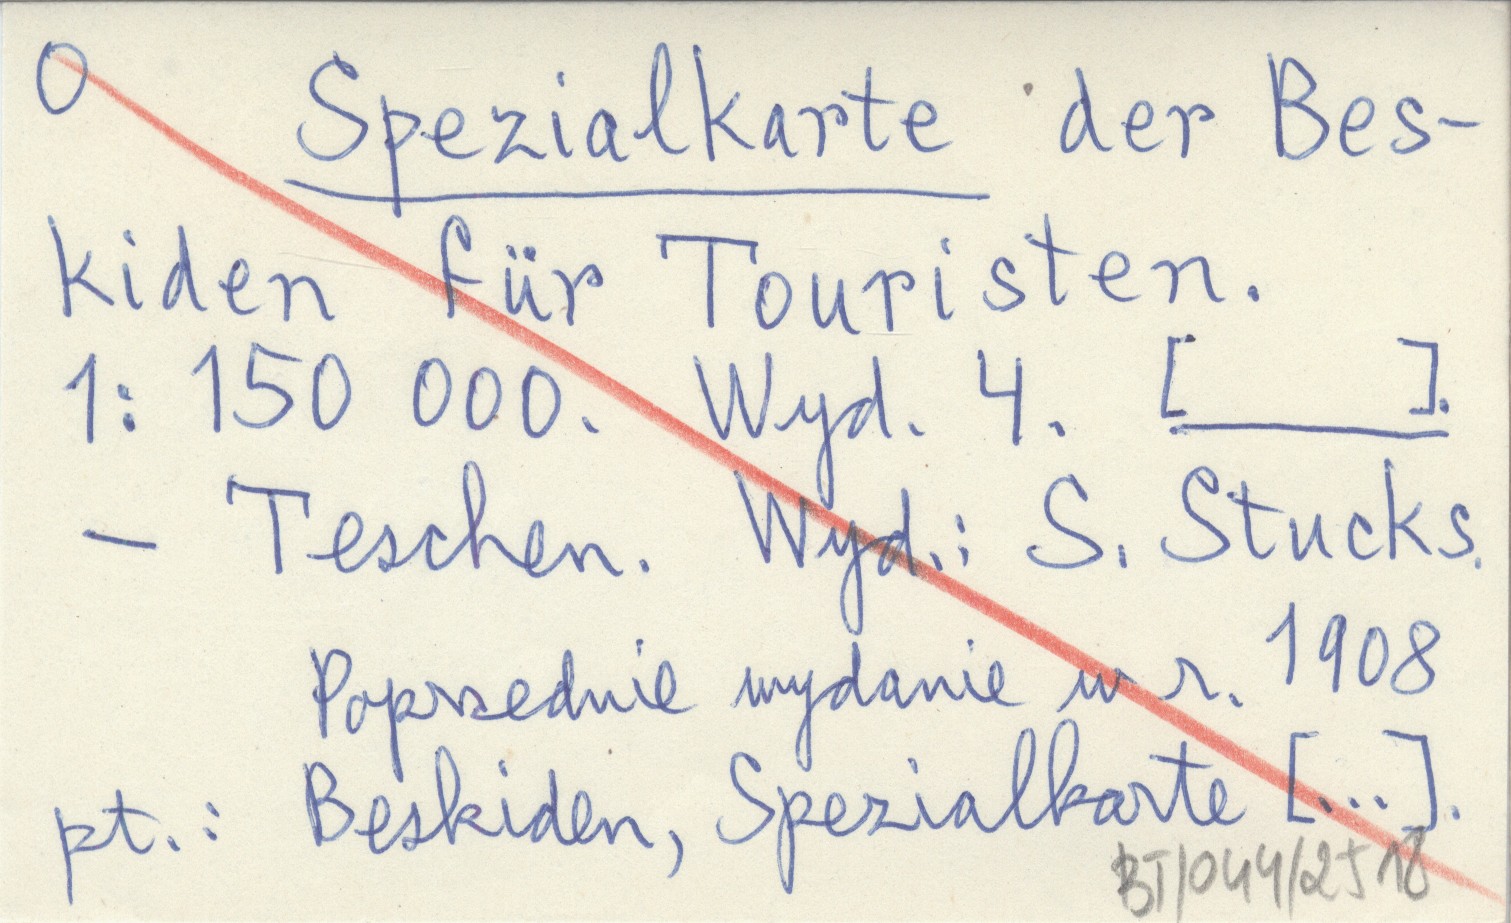 O Spezialkarte der Bes-
kiden für Touristen.
1: 150 000. Wyd. 4. [ ].
– Teschen. Wyd.: S. Stucks.
Poprzednie wydanie w r. 1908
pt.: Beskiden, Spezialkarte [...].
BT/044/2518